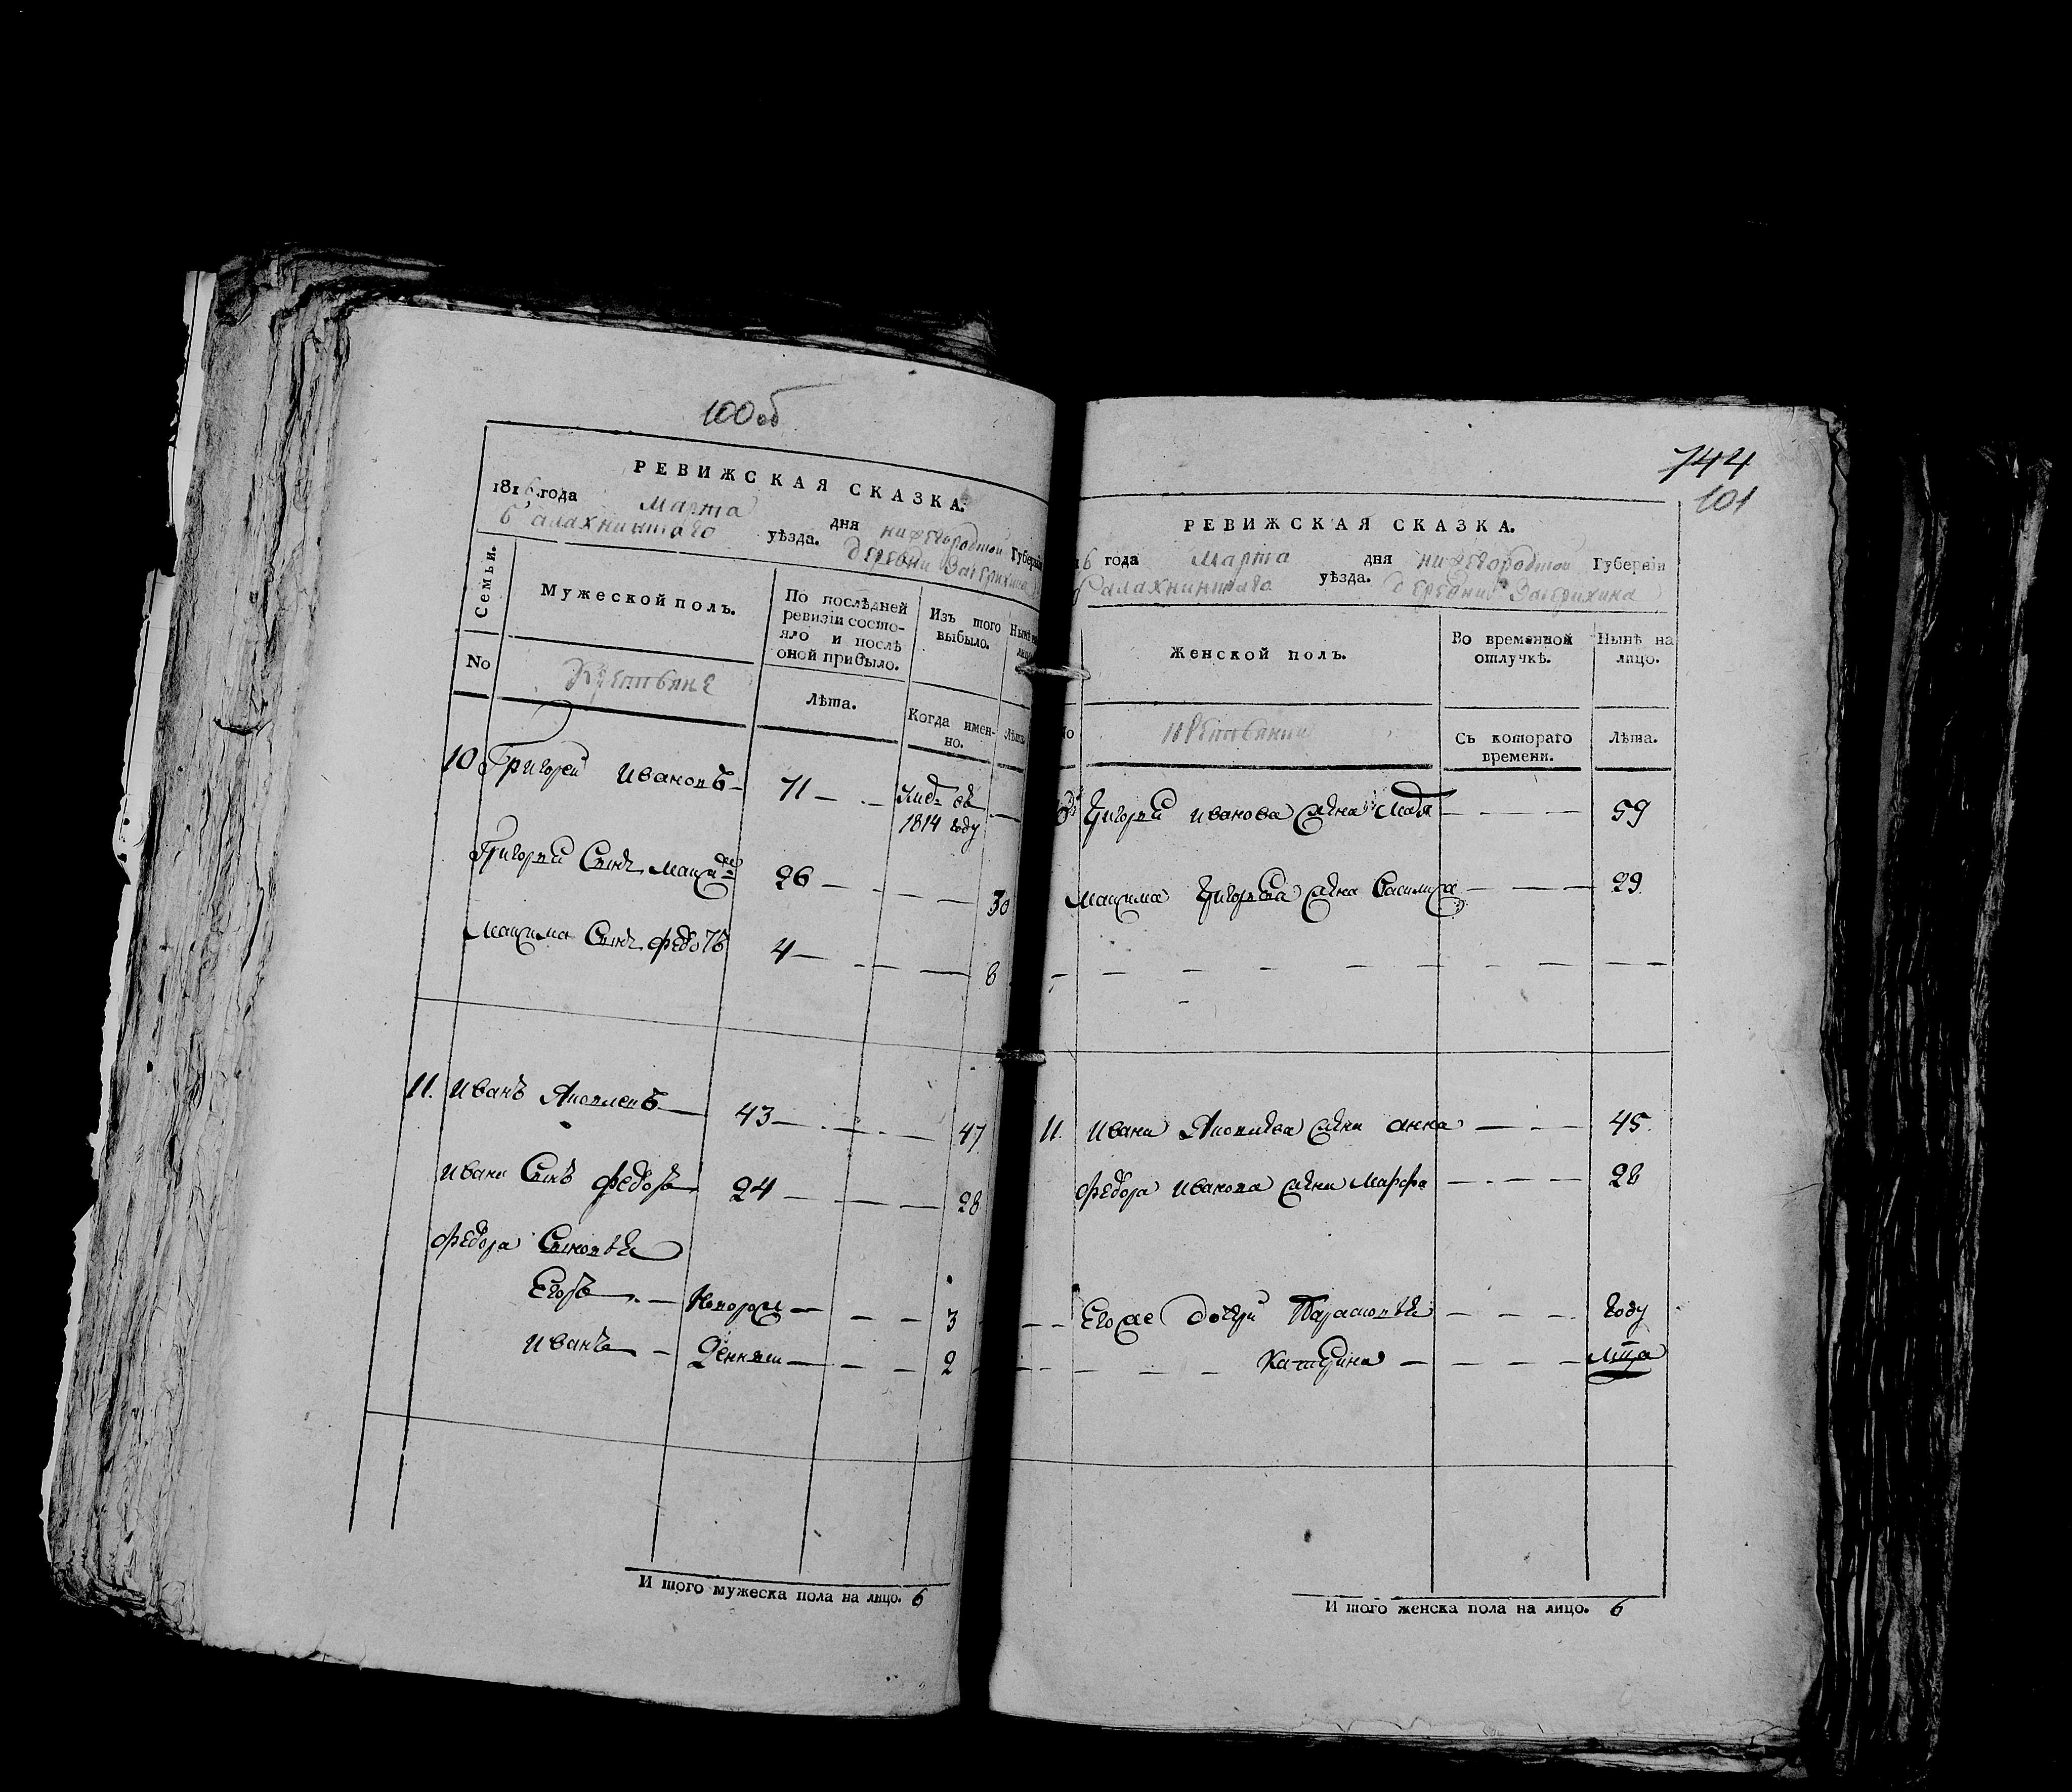 100 об
РЕВИЖСКАЯ СКАЗКА.
1816 года Марта дня нижегородской Губерніи
балахнинскаго уѣзда. деревни
Семьи.
Мужеской полъ.
По послѣдней ревизіи состояло и послѣ оной прибыло.
Изъ того выбыло.
Нынѣ на лицо.
No
Крестьяне
Лѣта.
Когда именно.
Лѣта.
10 Григорей Ивановъ 71
1814 году
Григорьи Сынъ 26 30
Максима Сынъ федотъ 4 8
11. Иванъ Яковлевъ 43 47
Ивана Сынъ федоръ 24 28
Федора Сыновья
Егоръ 3
Иванъ 2
И того мужеска пола на лицо. 6
744
101
РЕВИЖСКАЯ СКАЗКА.
6 года Марта дня нижегородской Губерніи
балахнинскаго уѣзда. деревни
Женской полъ.
Во временной отлучкѣ.
Нынѣ на лицо.
No
Съ котораго времени.
Лѣта.
Григорья иванова жена 59
максима григорьева жена Василиса 29
11. Ивана Яковлева жена анна 45
федора иванова жена марфа 28
Егоже дочери году
Катерина
И того женска пола на лицо. 6